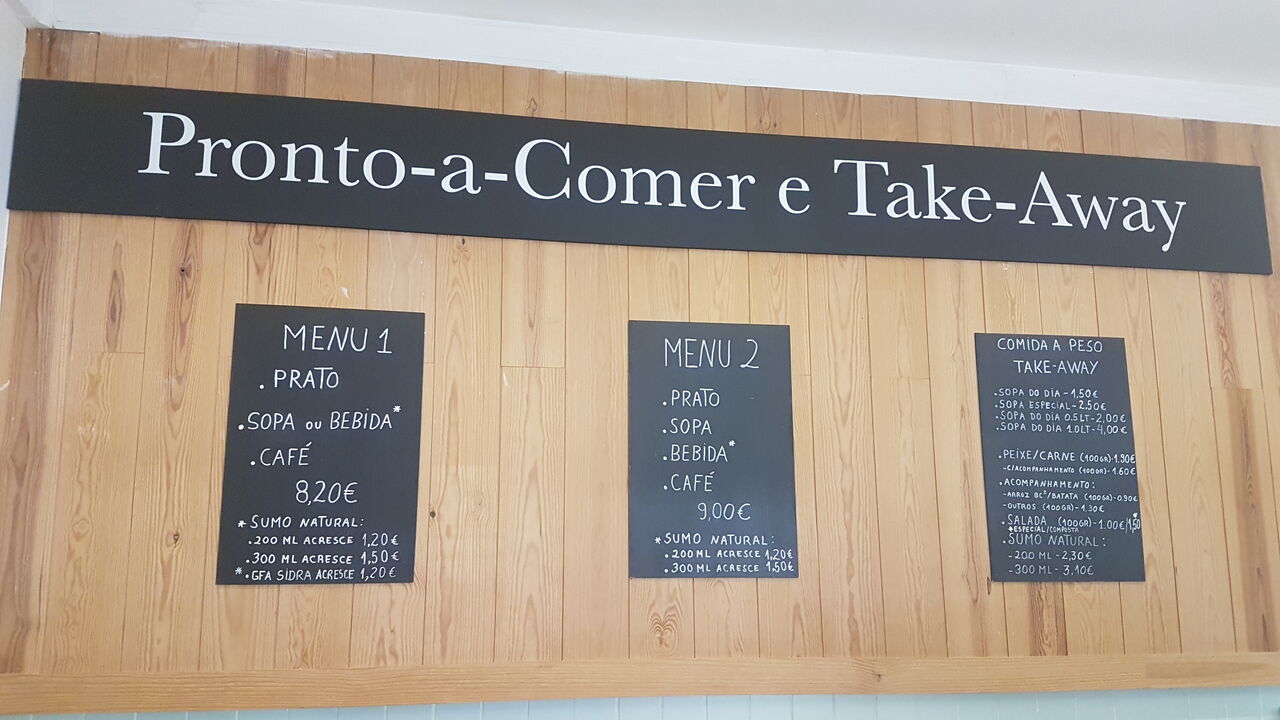 Pronto-a-Comer e Take-Away
MENU 1
. PRATO
. SOPA ou BEBIDA*
. CAFÉ
8,20€
* SUMO NATURAL:
. 200 ML ACRESCE 1,20€
. 300 ML ACRESCE 1,50€
* . GFA SIDRA ACRESCE 1,20€
MENU 2
. PRATO
. SOPA
. BEBIDA*
. CAFÉ
9,00€
* SUMO NATURAL:
. 200 ML ACRESCE 1,20€
. 300 ML ACRESCE 1,50€
COMIDA A PESO
TAKE-AWAY
. SOPA DO DIA - 1,50€
. SOPA ESPECIAL - 2,50€
. SOPA DO DIA 0.5LT - 2,00€
. SOPA DO DIA 1.0LT - 4,00€
. PEIXE/CARNE (100GR) - 1.90€
- C/ACOMPANHAMENTO (100GR) - 1.60€
. ACOMPANHAMENTO:
- ARROZ BCº/BATATA (100GR) - 0.90€
- OUTROS (100GR) - 1.30€
. SALADA (100GR) - 1.00€/1,50*
* ESPECIAL/COMPOSTA
. SUMO NATURAL:
- 200 ML - 2,30€
- 300 ML - 3,10€